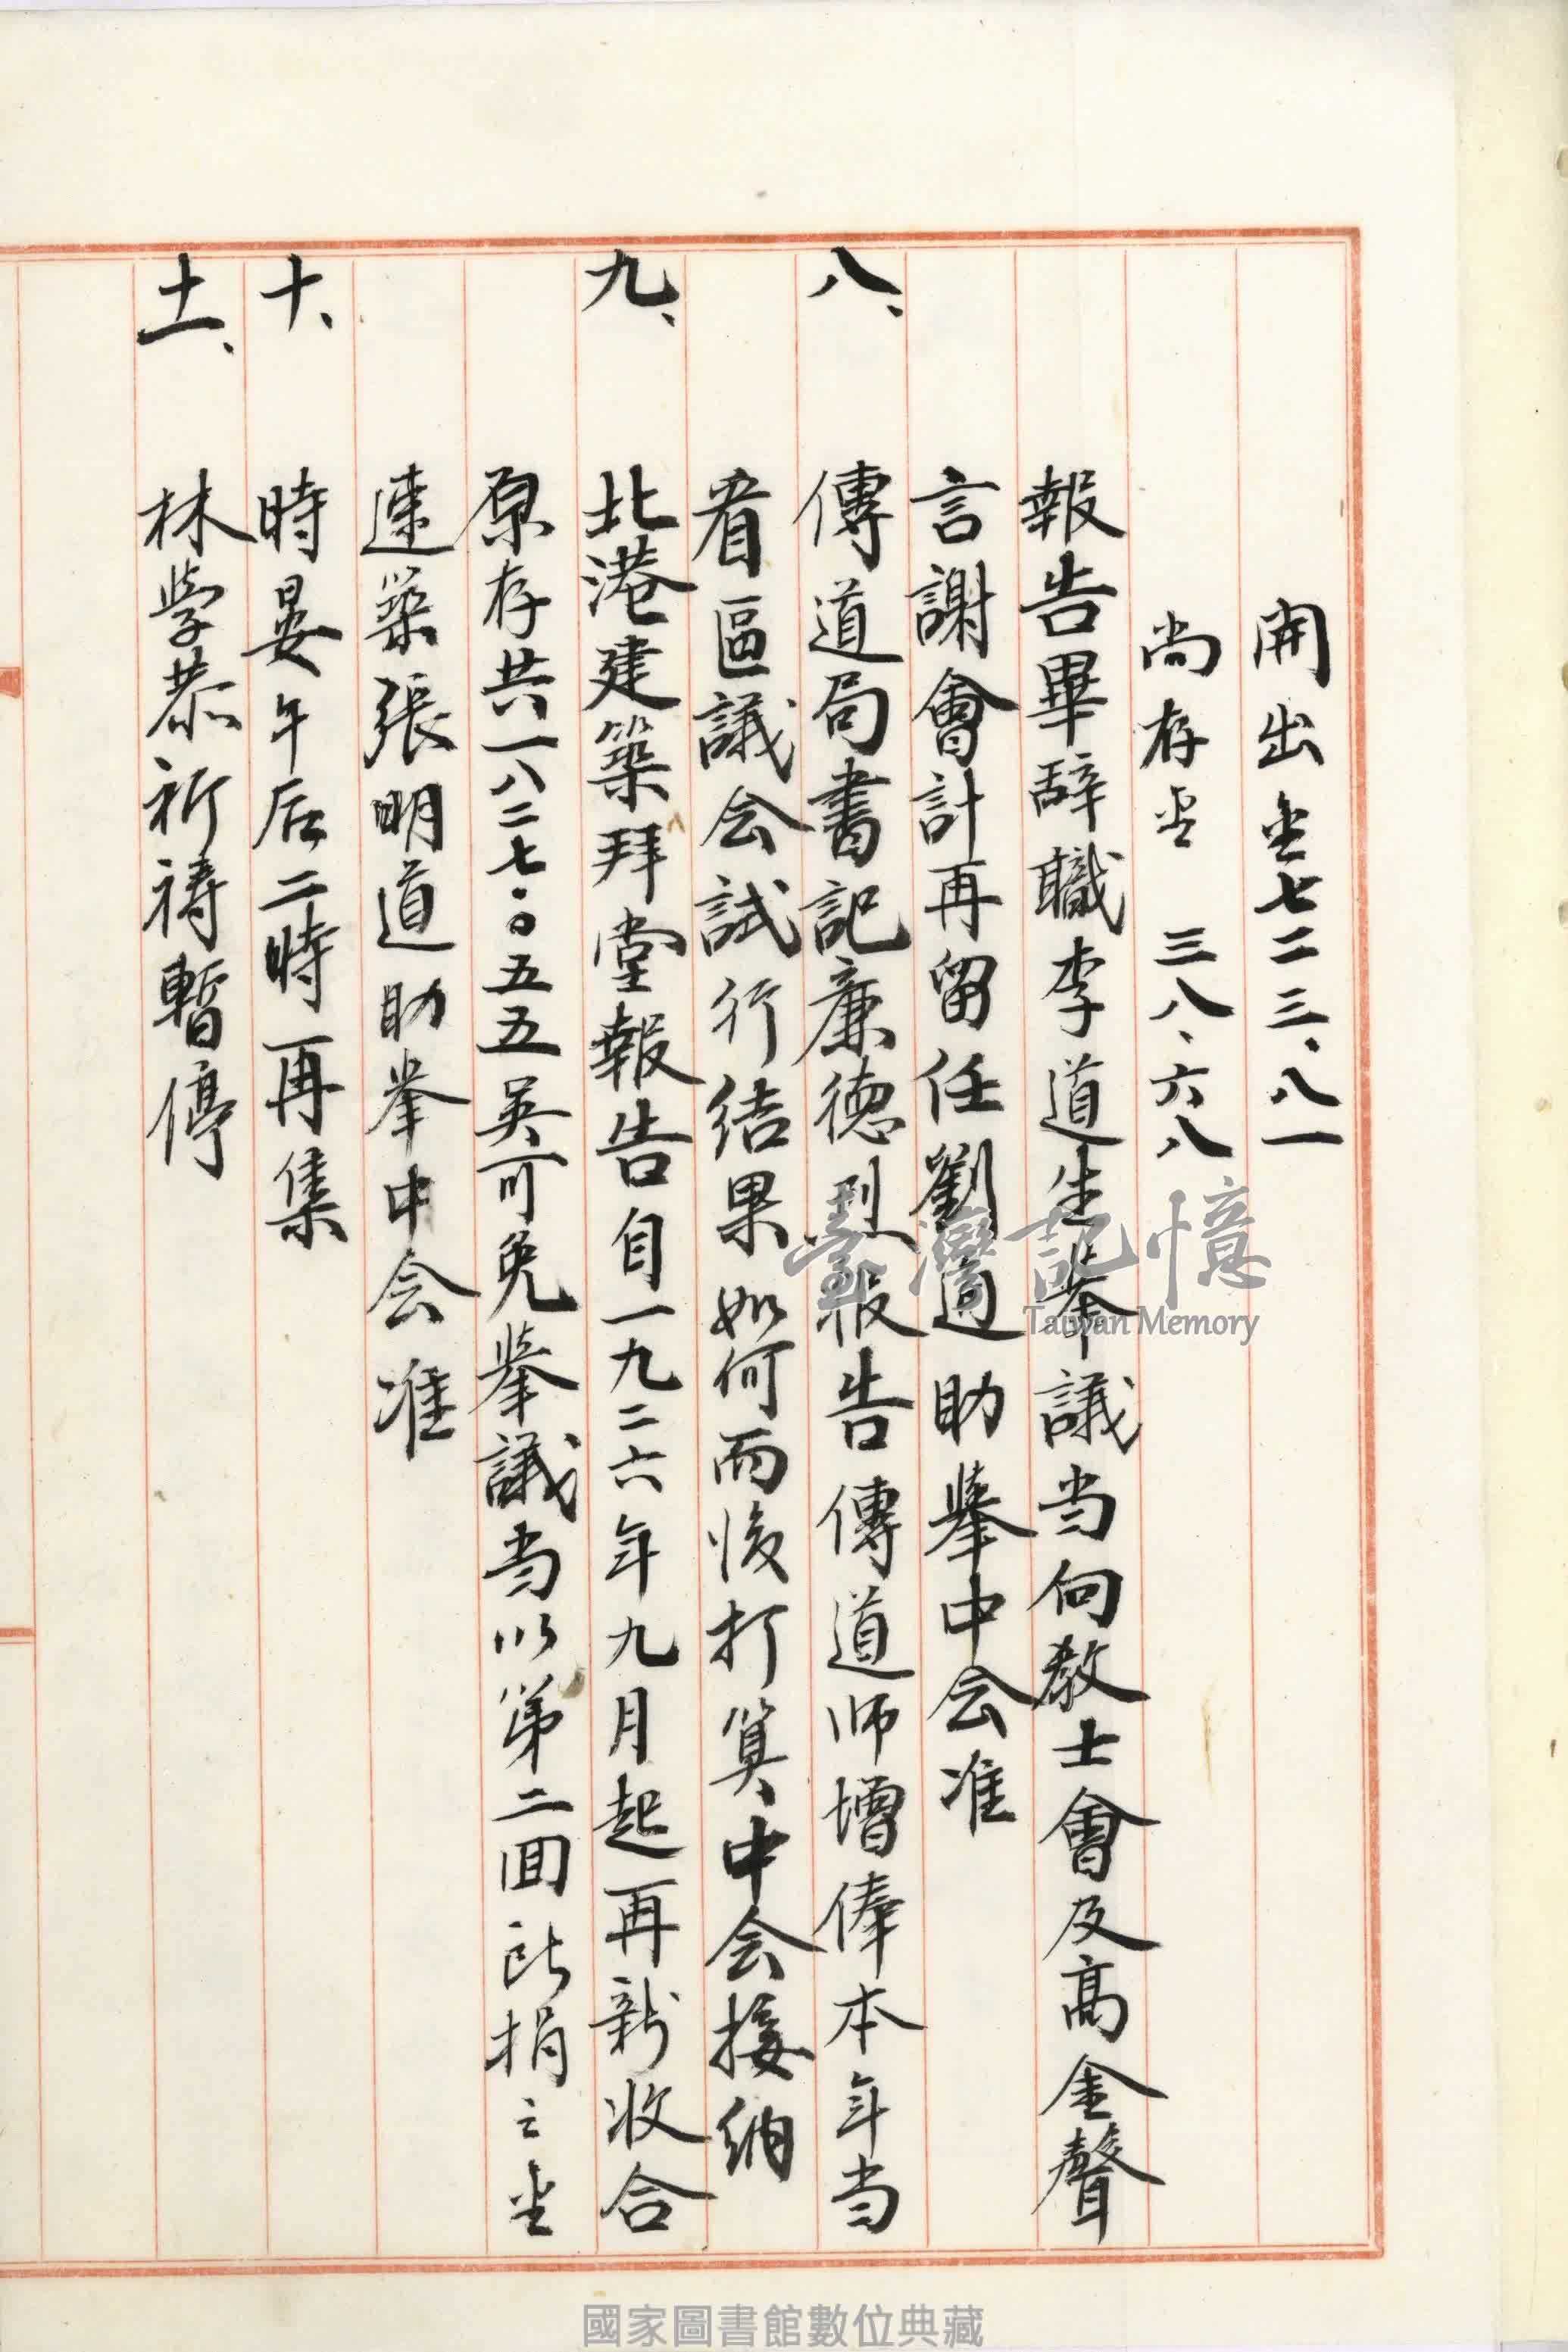 開出金七二三、八一
尚存金 三八、六八
報告畢辞職李道生举議当向教士會及高金聲
言謝會計再留任劉 助舉中会准
八、傳道局書記廉德烈報告傳道师增俸本年当
看區議会試行结果如何而後打算中会接纳
九、北港建築拜堂報告自一九二六年九月起再新收合
原存共一八二七·〇五五吳可免舉議当以第二回 捐之金
速築張明道助举中会准
十、時晏午后二時再集
十一、林学恭祈禱暫停
臺灣記憶
Taiwan Memory
國家圖書館數位典藏